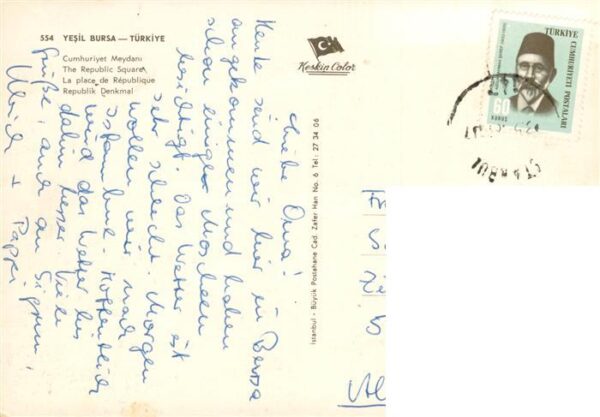 554 YEŞİL BURSA — TÜRKİYE
Cumhuriyet Meydanı
The Republic Square
La place de République
Republik Denkmal
Keskin Color
TÜRKİYE
CUMHURİYETİ POSTALARI
60
KURUŞ
Istanbul - Büyük Postahane Cad. Zafer Han No. 6 Tel: 27 34 06
Liebe Oma!
Heute sind wir hier in Bursa
angekommen und haben
schon einige Moscheen
besichtigt. Das Wetter ist
sehr schlecht. Morgen
wollen wir nach
Istambul. Hoffentlich
wird das Wetter bis
dahin besser. Viele
Grüße, auch an Sigrun,
Ulrich + Pappi